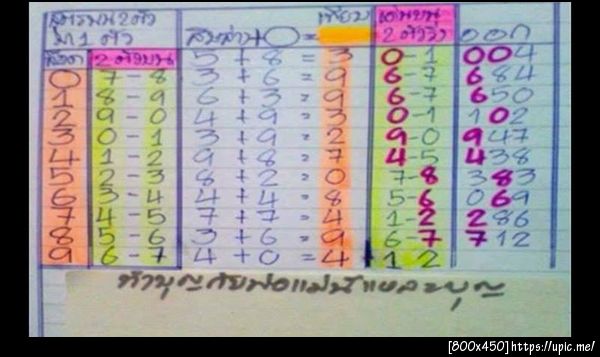 สูตรบน 2 ตัว
มา 1 ตัว สิบล่าง + O = เทียบ เด่นบน 2 ตัววิ่ง ออก
2 ตัวบน 5 + 8 = 3 0-1 004
0 7-8 3 + 6 = 9 6-7 684
1 8-9 6 + 3 = 9 6-7 650
2 9-0 4 + 9 = 3 0-1 102
3 0-1 3 + 9 = 2 9-0 947
4 1-2 9 + 8 = 7 4-5 438
5 2-3 8 + 2 = 0 7-8 383
6 3-4 4 + 4 = 8 5-6 069
7 4-5 7 + 7 = 4 1-2 286
8 5-6 3 + 6 = 9 6-7 712
9 6-7 4 + 0 = 4 12
ทำบุญกับพ่อแม่นี่แหละบุญ
[800x450] https://upic.me/